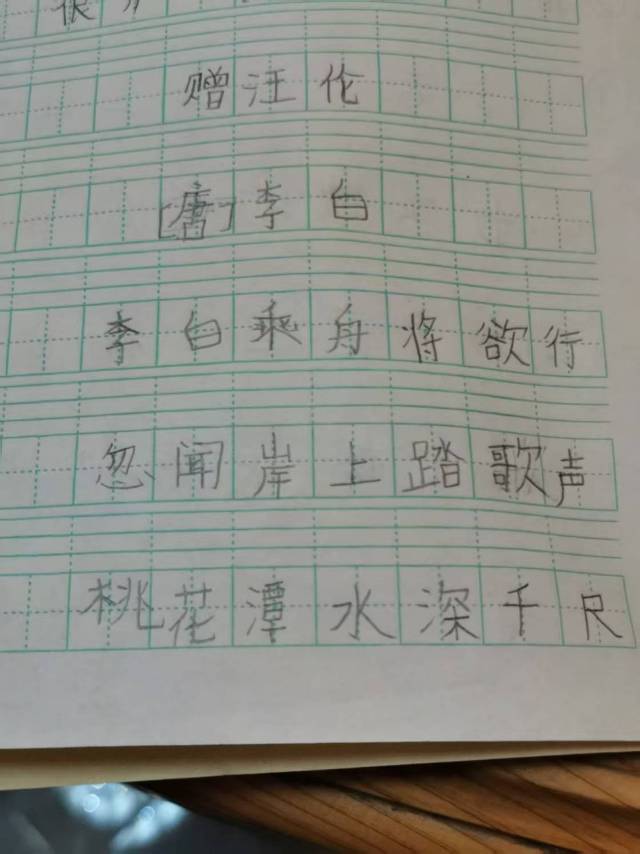 很
赠汪伦
[唐]李白
李白乘舟将欲行
忽闻岸上踏歌声
桃花潭水深千尺